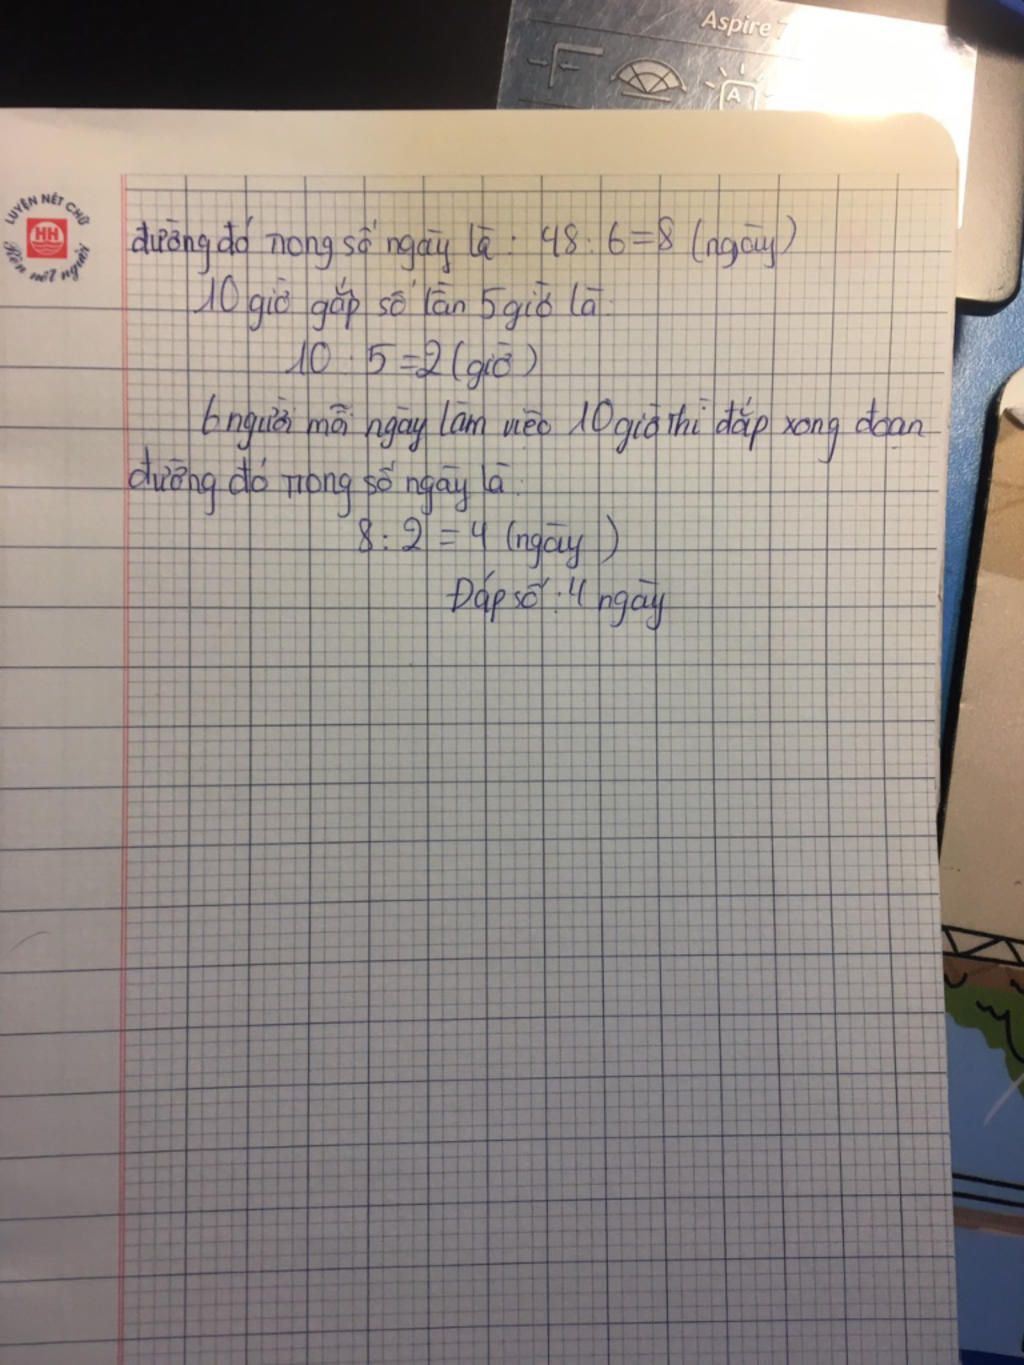 Aspire 7
A
LUYỆN NÉT CHỮ
HH
Rèn nết người
đường đó trong số ngày là : 48 : 6 = 8 (ngày)
10 giờ gấp số lần 5 giờ là:
10 : 5 = 2 (giờ)
6 người mỗi ngày làm việc 10 giờ thì đắp xong đoạn
đường đó trong số ngày là:
8 : 2 = 4 (ngày)
Đáp số : 4 ngày